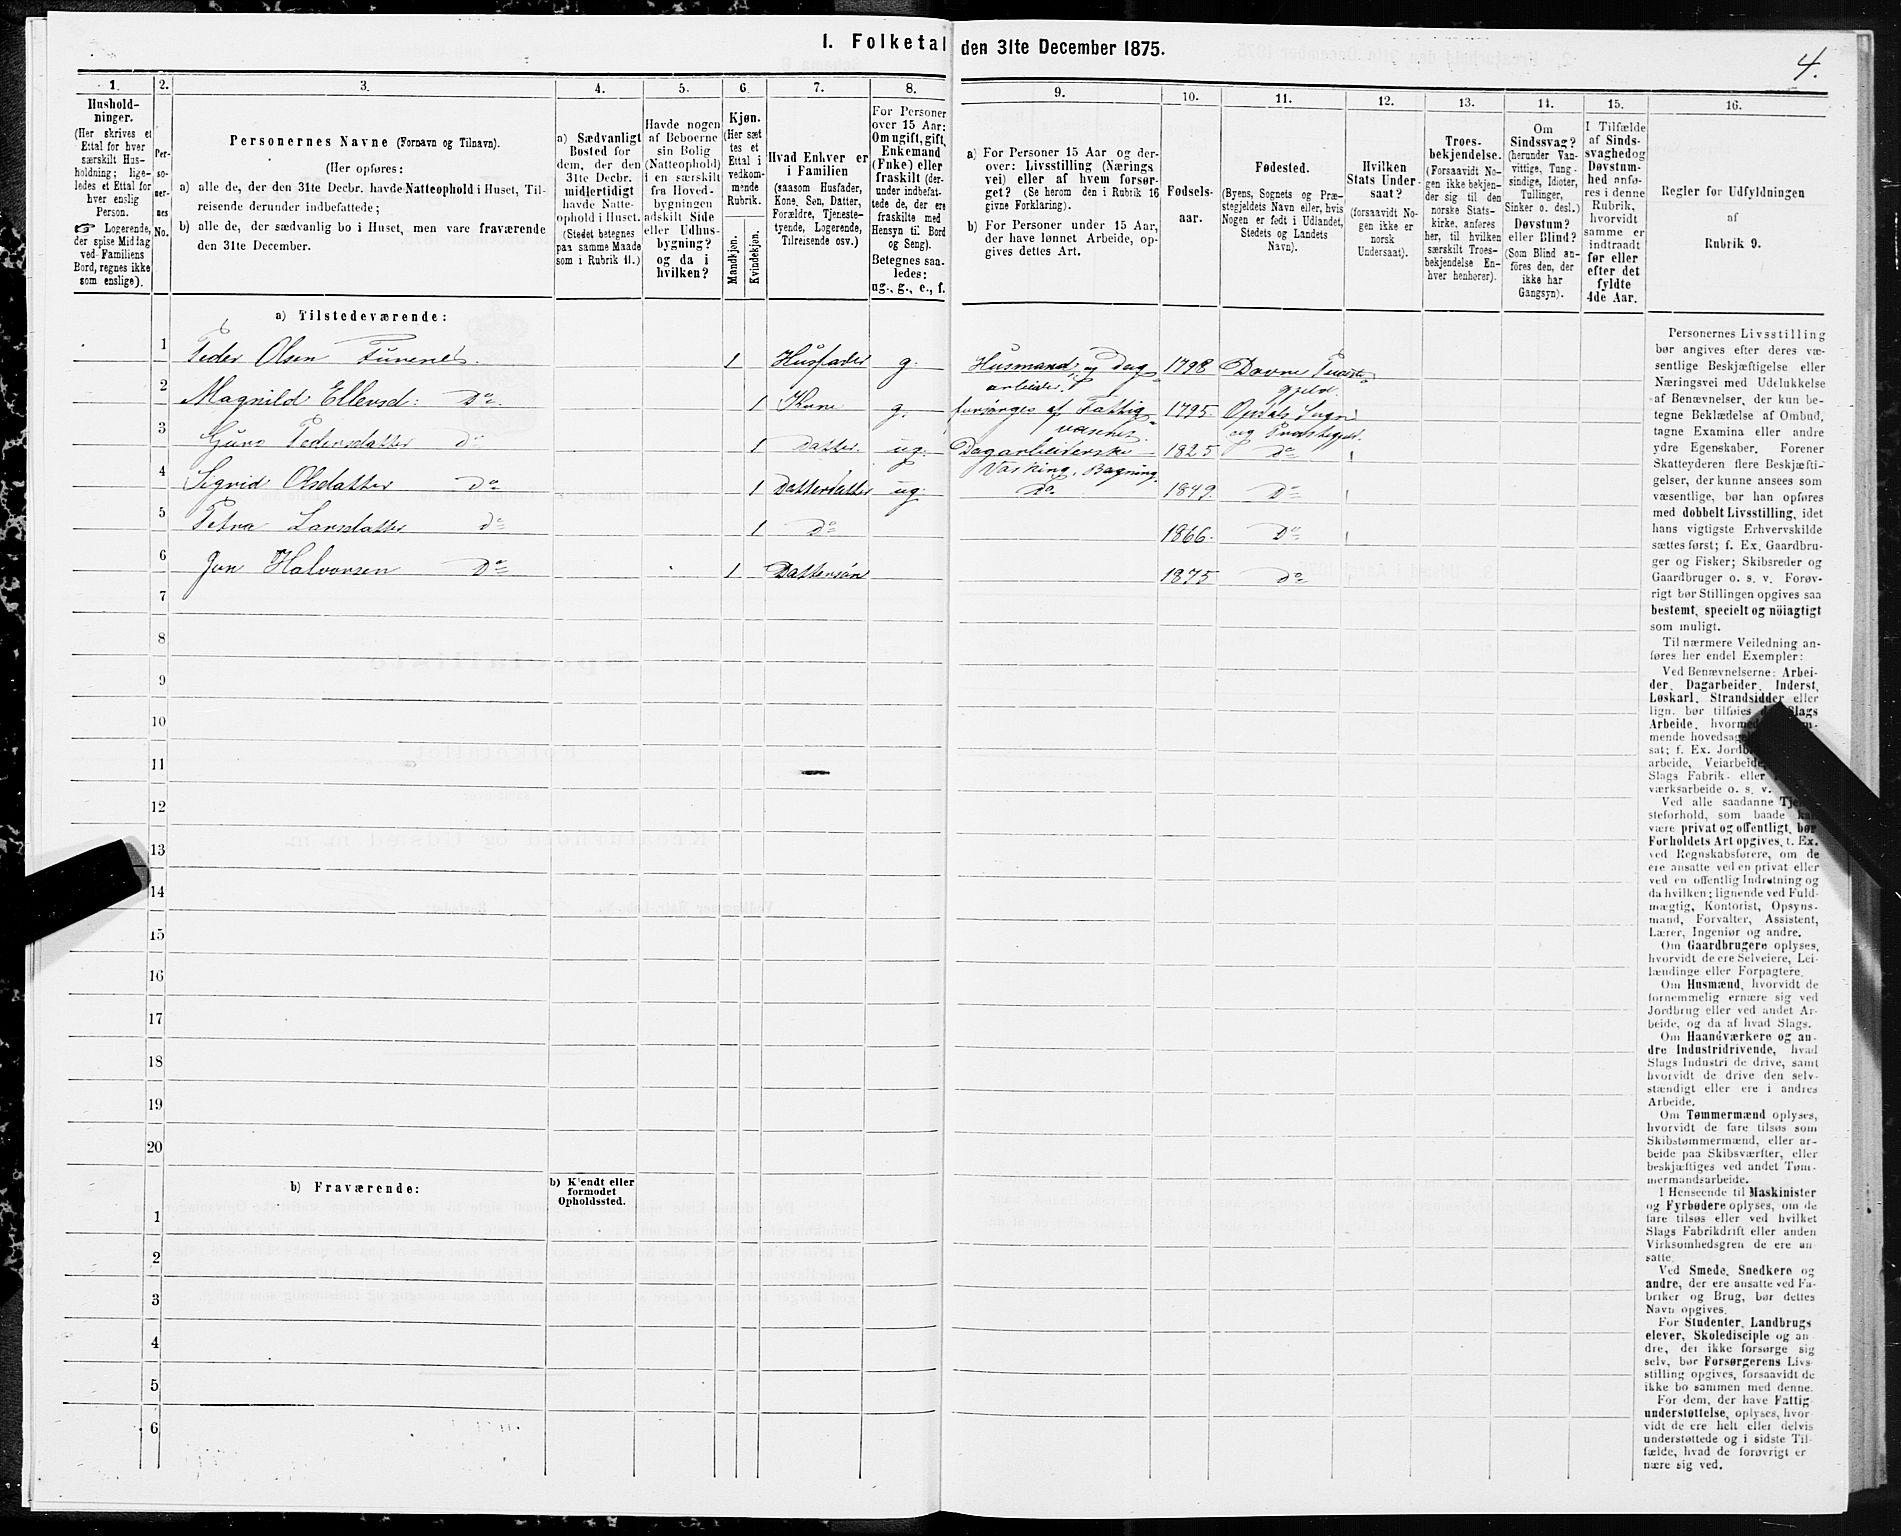 I. Folketal den 31te December 1875.
4.
1.
Hushold-
ninger.
(Her skrives et
Ettal for hver
særskilt Hus-
holdning; lige-
ledes et Ettal for
hver enslig
Person.
☞ Logerende,
der spise Middag
ved Familiens
Bord, regnes ikke
som enslige).
2.
Per-
so-
ner-
nes
No.
3.
Personernes Navne (Fornavn og Tilnavn).
(Her opføres:
a) alle de, der den 31te Decbr. havde Natteophold i Huset, Til-
reisende derunder indbefattede;
b) alle de, der sædvanlig bo i Huset, men vare fraværende
den 31te December.
4.
a) Sædvanligt
Bosted for
dem, der den
31te Decbr.
midlertidigt
havde Natte-
ophold i Huset.
(Stedet betegnes
paa samme Maade
som i Rubrik 11.)
5.
Havde nogen
af Beboerne
sin Bolig
(Natteophold)
i en særskilt
fra Hoved-
bygningen
adskilt Side
eller Udhus-
bygning?
og da i
hvilken?
6.
Kjøn.
(Her sæt
tes et
Ettal i
vedkom-
mende
Rubrik.
Mandkjøn.
Kvindekjøn.
7.
Hvad Enhver er
i Familien
(saasom Husfader,
Kone, Søn, Datter,
Forældre, Tjeneste-
tyende, Logerende,
Tilreisende osv.)
8.
For Personer
over 15 Aar:
Om ugift, gift,
Enkemand
(Enke) eller
fraskilt (der-
under indbefat-
tede de, der ere
fraskilte med
Hensyn til Bord
og Seng).
Betegnes saa-
ledes:
ug., g., e., f.
9.
a) For Personer 15 Aar og der-
over: Livsstilling (Nærings
vei) eller af hvem forsør-
get? (Se herom den i Rubrik 16
givne Forklaring).
b) For Personer under 15 Aar,
der have lønnet Arbeide, op-
gives dettes Art.
10.
Fødsels-
aar.
11.
Fødested.
(Byens, Sognets og Præ-
stegjeldets Navn eller, hvis
Nogen er født i Udlandet,
Stedets og Landets
Navn).
12.
Hvilken
Stats Under-
saat?
(forsaavidt No-
gen ikke er
norsk
Undersaat).
13.
Troes-
bekjendelse.
(Forsaavidt No-
gen ikke bekjen-
der sig til den
norske Stats-
kirke, anføres
her, til hvilken
særskilt Troes-
bekjendelse En-
hver henhører).
14.
Om
Sindssvag?
(herunder Van-
vittige, Tung-
sindige, Idioter,
Tullinger,
Sinker o. desl.)
Døvstum?
eller Blind?
(Som Blind an-
føres den, der
ikke har
Gangsyn).
15.
I Tilfælde
af Sinds-
svaghed og
Døvstum-
hed anfø-
res i denne
Rubrik,
hvorvidt
samme er
indtraadt
før eller
efter det
fyldte
4de Aar.
16.
Regler for Udfyldningen
af
Rubrik 9.
a) Tilstedeværende:
1 Peder Olsen Furenes. 1 Husfader g. Husmand og Dag 1798 Dovre Præste
arbeider gjeld.
2 Magnild Ellensd: Do. 1 Kone g. forsørges af Fattig 1795. Opdals Sogn
væsnet. og Præstegjeld.
3 Guro Pedersdatter do 1 Datter ug. Dagarbeiderske 1825 do
Vasking, Bagning.
4 Sigrid Olsdatter do 1 Datterdatter ug. Do. 1849. Do
5 Petra Larsdatter do 1 do 1866. Do
6 Jon Halvorsen Do 1 Dattersøn 1875 do
7
8
9
10
11
12
13
14
15
16
17
18
19
20
b) Fraværende:
b) Kendt eller
formodet
Opholdssted.
1
2
3
4
5
6
Personernes Livsstilling
bør angives efter deres væ-
sentlige Beskjæftigelse eller
Næringsvei med Udelukkelse
af Benævnelser, der kun be-
tegne Beklædelse af Ombud,
tagne Examina eller andre
ydre Egenskaber. Forener
Skatteyderen flere Beskjæfti-
gelser, der kunne ansees som
væsentlige, bør han opføres
med dobbelt Livsstilling, idet
hans vigtigste Erhvervskilde
sættes først; f. Ex. Gaardbru-
ger og Fisker; Skibsreder og
Gaardbruger o. s. v. Forøv-
rigt bør Stillingen opgives saa
bestemt, specielt og nöiagtigt
som muligt.
Til nærmere Veiledning an-
føres her endel Exempler:
Ved Benævnelserne: Arbei-
der, Dagarbeider, Inderst,
Løskarl, Strandsidder eller
lign. bør tilføies Slags
Arbeide, hvormed
mende hovedsage
sat; f. Ex. Jordb
arbeide, Veiarbeide
Slags Fabrik- eller
værksarbeide o. s. v.
Ved alle saadanne Tje
steforhold, som baade kan
være privat og offentligt, bør
Forholdets Art opgives, t. Ex.
ved Regnskabsførere, om de
ere ansatte ved en privat eller
ved en offentlig Indretning og
da hvilken; lignende ved Fuld-
mægtig, Kontorist, Opsyns-
mand, Forvalter, Assistent,
Lærer, Ingeniør og andre.
Om Gaardbrugere oplyses,
hvorvidt de ere Selveiere, Lei-
lændinge eller Forpagtere.
Om Husmænd, hvorvidt de
fornemmelig ernære sig ved
Jordbrug eller ved andet Ar-
beide, og da af hvad Slags.
Om Haandværkere og an-
dre Industridrivende, hvad
Slags Industri de drive, samt
hvorvidt de drive den selv-
stændigt eller ere i andres
Arbeide.
Om Tømmermænd oplyses,
hvorvidt de fare tilsøs som
Skibstømmermænd, eller ar-
beide paa Skibsværfter, eller
beskjæftiges ved andet Tøm-
mermandsarbeide.
I Henseende til Maskinister
og Fyrbødere oplyses, om de
fare tilsøs eller ved hvilket
Slags Fabrikdrift eller anden
Virksomhedsgren de ere an-
satte.
Ved Smede, Snedkere og
andre, der ere ansatte ved Fa-
briker og Brug, bør dettes
Navn opgives.
For Studenter, Landbrugs
elever, Skoledisciple og an
dre, der ikke forsørge sig
selv, bør Forsørgerens Livs-
stilling opgives, forsaavidt de
ikke bo sammen med denne.
For dem, der have Fattig
understøttelse, oplyses, hvor-
vidt de ere helt eller delvis
understøttede og i sidste Til-
fælde, hvad de forøvrigt er
nære sig ved.